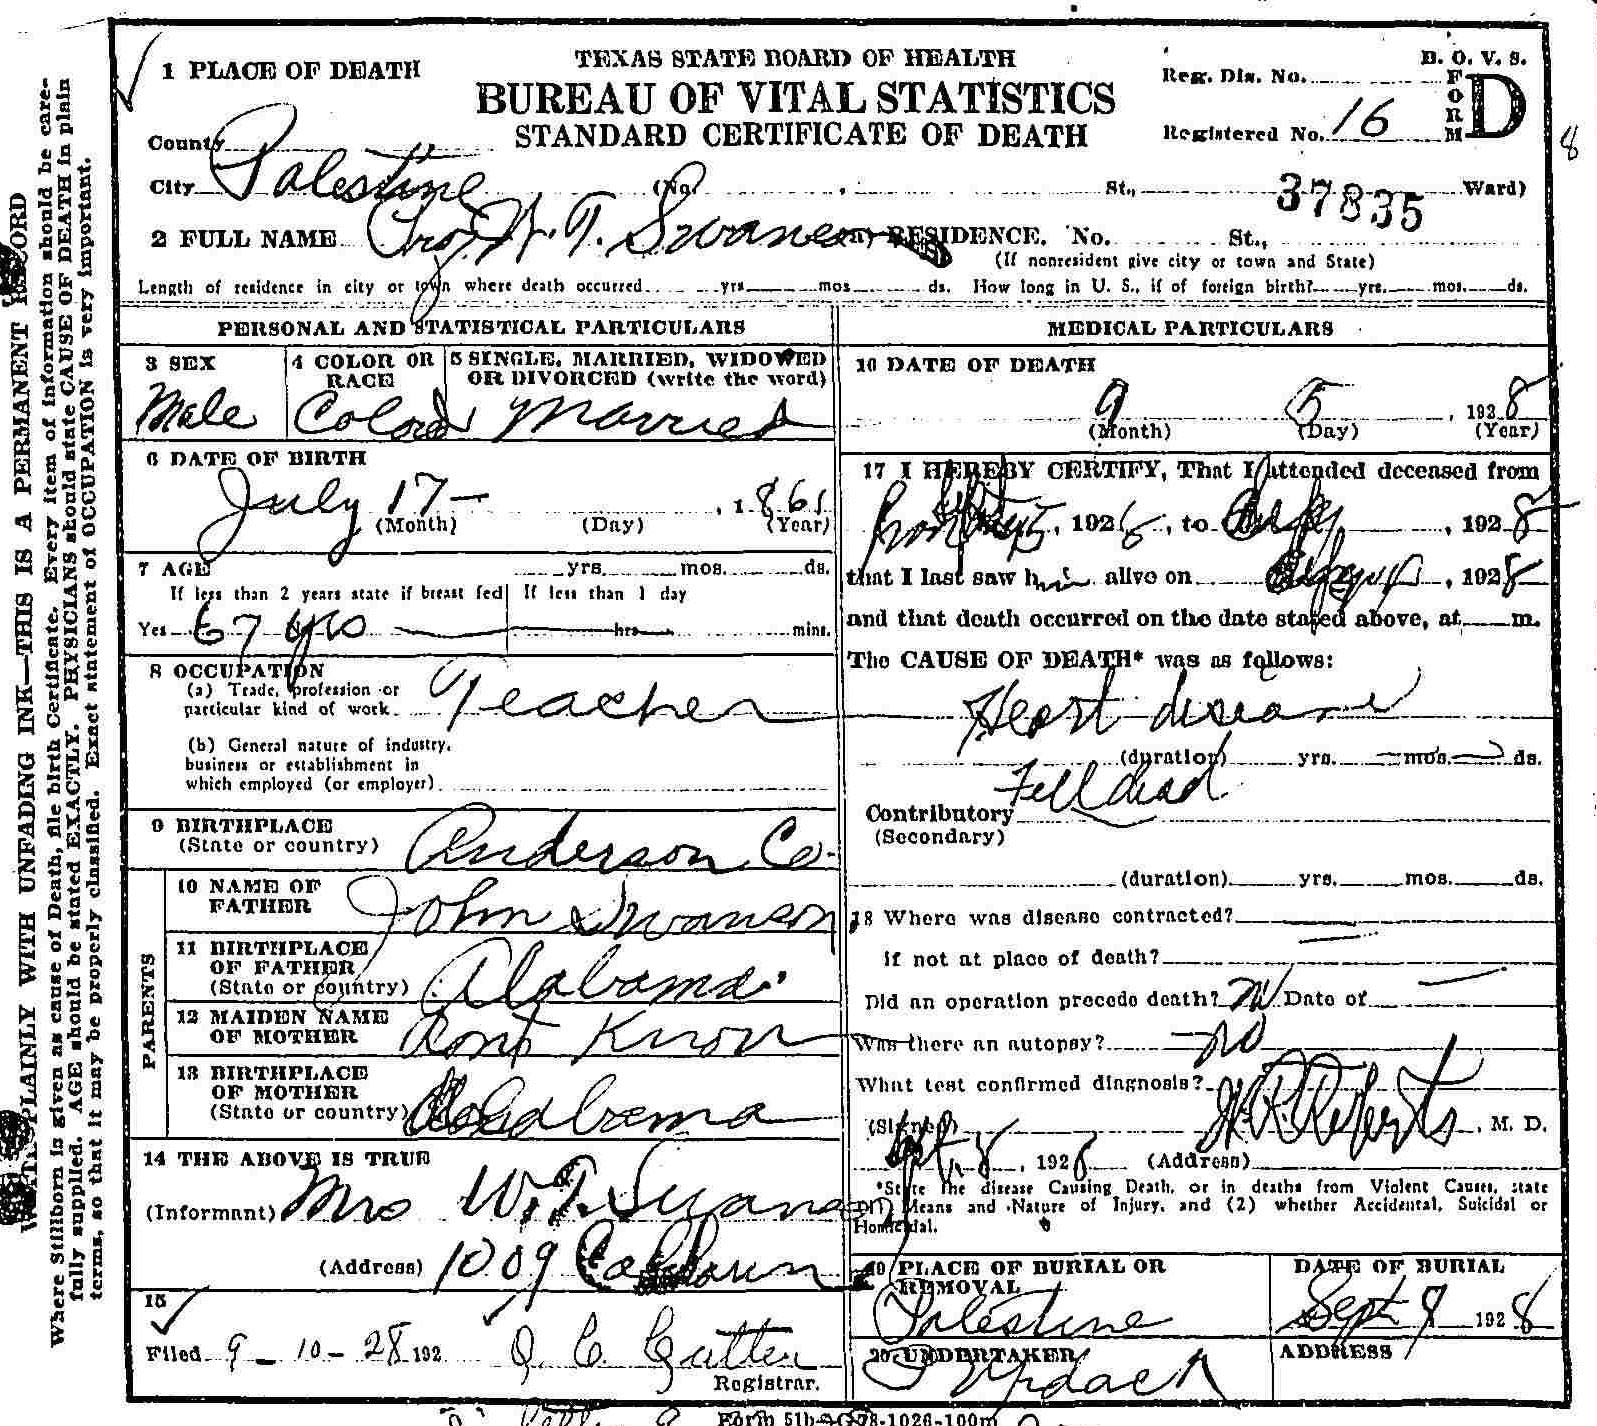 TEXAS STATE BOARD OF HEALTH
BUREAU OF VITAL STATISTICS
STANDARD CERTIFICATE OF DEATH
B. O. V. S.
FORM D
Reg. Dis. No.
Registered No. 16
8
37835
1 PLACE OF DEATH
County
City Palestine (No. , St., Ward)
2 FULL NAME Prof. W. T. Swanson (a) RESIDENCE. No. St.,
(If nonresident give city or town and State)
Length of residence in city or town where death occurred yrs mos. ds. How long in U. S., if of foreign birth? yrs. mos. ds.
PERSONAL AND STATISTICAL PARTICULARS
3 SEX
Male
4 COLOR OR RACE
Colord
5 SINGLE, MARRIED, WIDOWED
OR DIVORCED (write the word)
Married
6 DATE OF BIRTH
July 17 - , 1861
(Month) (Day) (Year)
7 AGE yrs mos. ds.
If less than 2 years state if breast fed If less than 1 day
Yes 67 yrs hrs. mins.
8 OCCUPATION
(a) Trade, profession or
particular kind of work Teacher
(b) General nature of industry,
business or establishment in
which employed (or employer)
9 BIRTHPLACE
(State or country) Anderson Co.
PARENTS
10 NAME OF
FATHER John Swanson
11 BIRTHPLACE
OF FATHER
(State or country) Alabama.
12 MAIDEN NAME
OF MOTHER Dont Know
13 BIRTHPLACE
OF MOTHER
(State or country) Alabama
14 THE ABOVE IS TRUE
(Informant) Mrs W. T. Swanson
(Address) 1009 Calhoun
15
Filed 9 - 10 - 28 192
Registrar.
MEDICAL PARTICULARS
16 DATE OF DEATH
9 5 , 1928
(Month) (Day) (Year)
17 I HEREBY CERTIFY, That I attended deceased from
, 1928, to , 1928
that I last saw him alive on , 1928
and that death occurred on the date stated above, at m.
The CAUSE OF DEATH* was as follows:
Heart disease
(duration) yrs. mos. ds.
Contributory Fell dead
(Secondary)
(duration) yrs. mos. ds.
18 Where was disease contracted?
if not at place of death?
Did an operation precede death? no Date of
Was there an autopsy? no
What test confirmed diagnosis?
(Signed) H R Roberts, M. D.
Sept. 8, 1928 (Address)
*State the disease Causing Death, or in deaths from Violent Causes, state
(1) Means and Nature of Injury, and (2) whether Accidental, Suicidal or
Homicidal.
19 PLACE OF BURIAL OR
REMOVAL
Palestine
DATE OF BURIAL
Sept 9 1928
20 UNDERTAKER
ADDRESS
Form 51b
WRITE PLAINLY WITH UNFADING INK—THIS IS A PERMANENT RECORD
Where Stillborn is given as cause of Death, file birth Certificate. Every item of information should be care-
fully supplied. AGE should be stated EXACTLY. PHYSICIANS should state CAUSE OF DEATH in plain
terms, so that it may be properly classified. Exact statement of OCCUPATION is very important.